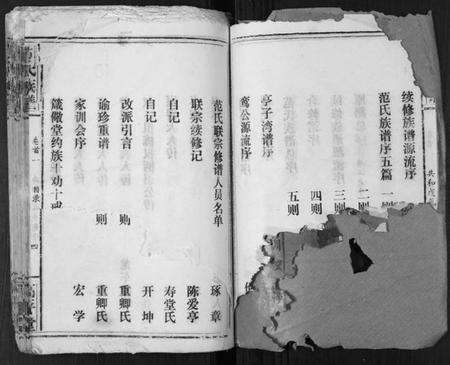 续修族谱源流序
范氏族谱序五篇 一则
二则
三则
四则
五则
亭子湾谱序
鸾公源流序
共和
范氏联宗修谱人员名单
联宗续修记 琢章
自记 陈爱亭
自记 寿堂氏
改派引言 一则 开坤
谕珍重谱 一则 重卿氏
家训会序 重卿氏
箴儆堂约族十劝十戒 宏学
氏族
卷首
目录
四